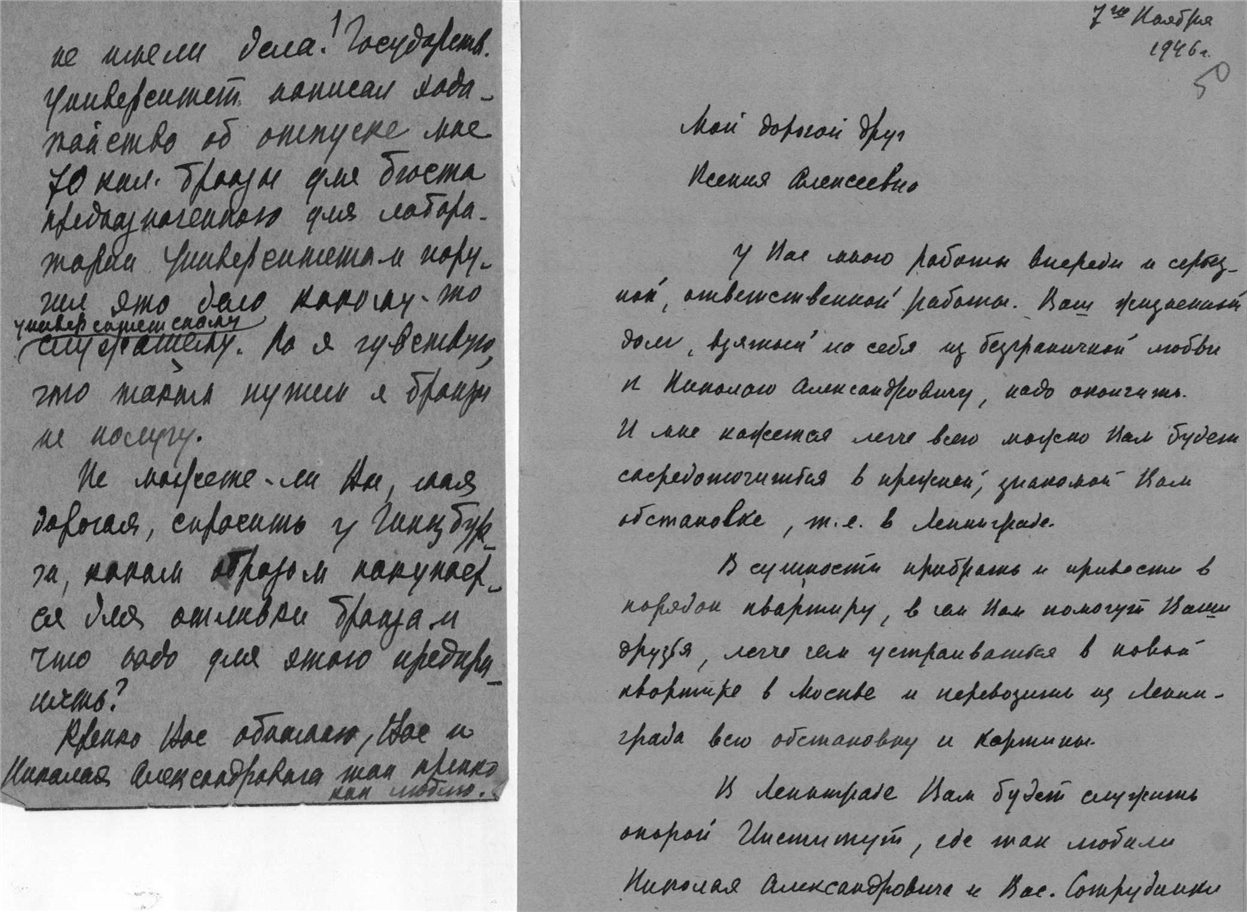 не имели дела. Государств.
Университет написал хода-
тайство об отпуске мне
70 кил. бронзы для бюста
предназначенного для лабора-
тории Университетом пору-
чил это дело какому-то
университетскому
служащему. Но я чувствую,
что таким путем я бронзы
не получу.
Не можете-ли Вы, моя
дорогая, спросить у Гинцбур-
га, каким образом покупает-
ся для отливки бронза и
что надо для этого предпри-
нять?
Крепко Вас обнимаю, Вас и
Николая Александровича так крепко
как люблю.
7го Ноября
1946 г.
50
Мой дорогой друг
Ксения Алексеевна
У Вас много работы впереди и серьез-
ной, ответственной работы. Ваш жизненный
долг, взятый на себя из безграничной любви
к Николаю Александровичу, надо окончить.
И мне кажется легче всего можно Вам будет
сосредоточиться в прежней, знакомой Вам
обстановке, т.е. в Ленинграде.
В сущности прибрать и привести в
порядок квартиру, в чем Вам помогут Ваши
друзья, легче чем устраиваться в новой
квартире в Москве и перевозить из Ленин-
града всю обстановку и картины.
В Ленинграде Вам будет служить
опорой Институт, где так любили
Николая Александровича и Вас. Сотрудники